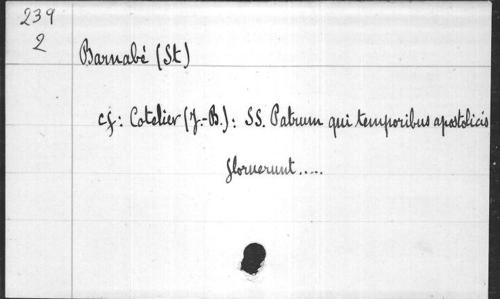 239
2
Barnabé (St)
cf: Cotelier (J.-B.): SS. Patrum qui temporibus apostolicis
floruerunt.....